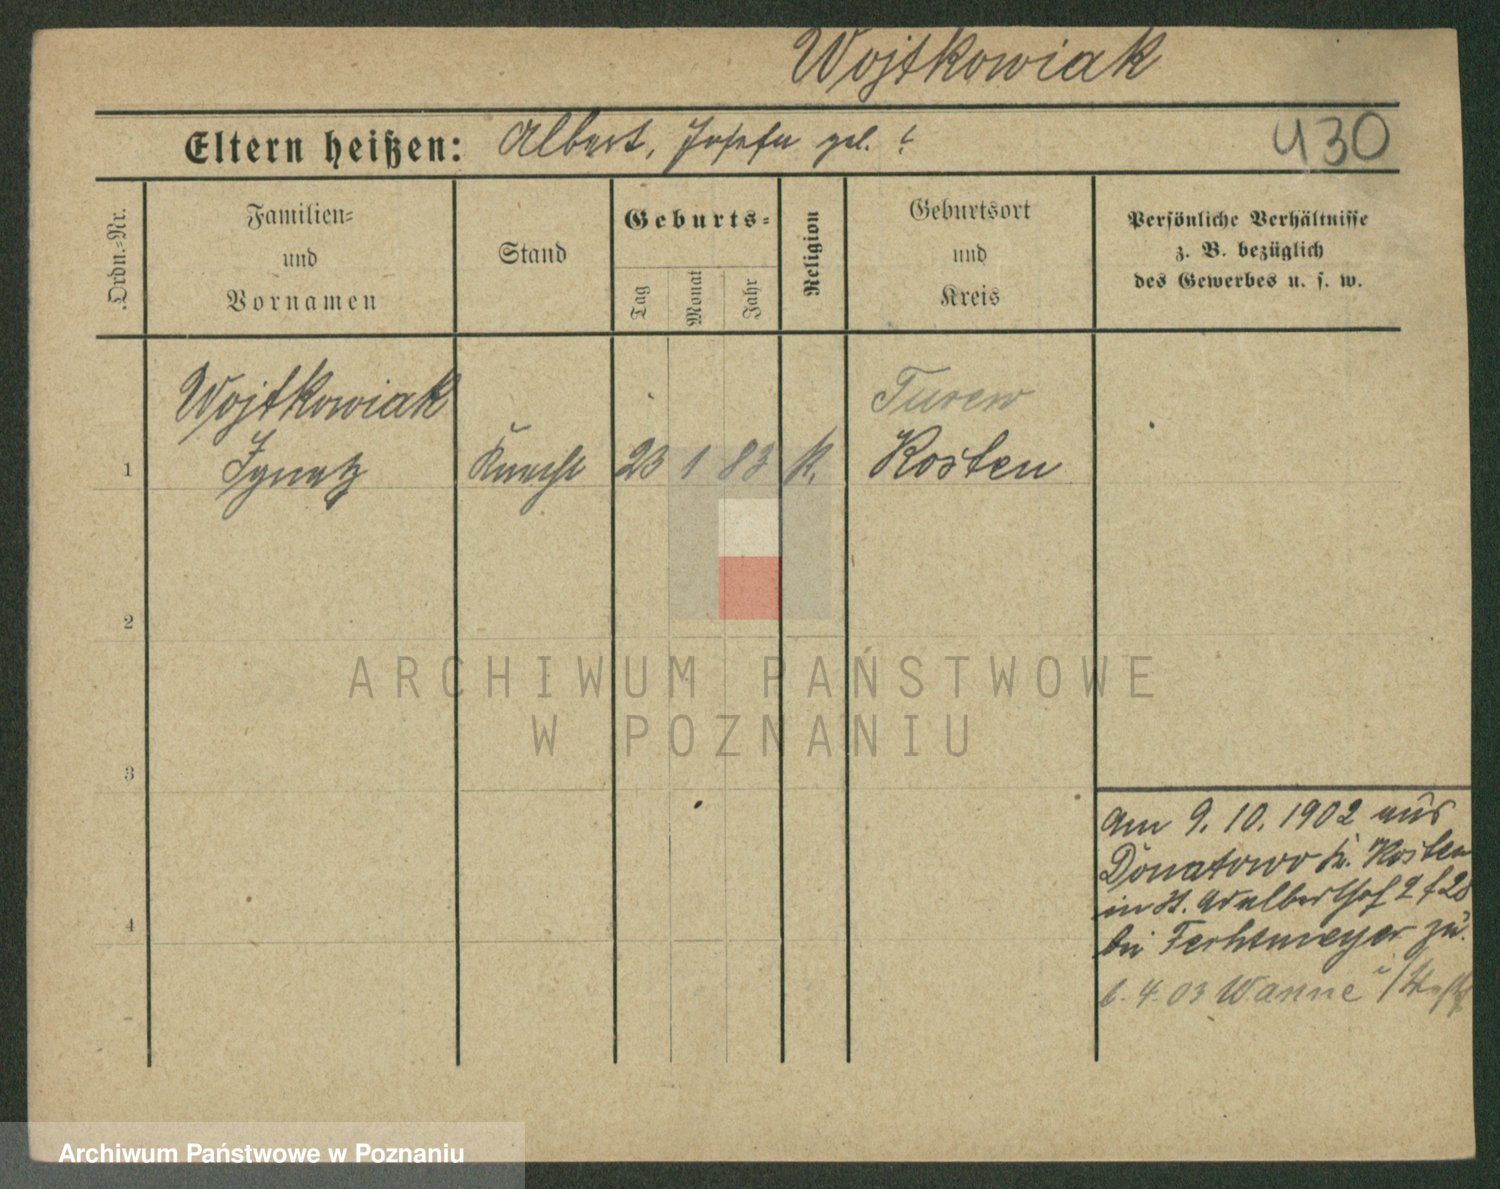 Wojtkowiak
Eltern heißen: Albert, Josefa geb. ?
430
Ordn.=Nr.
Familien=
und
Vornamen
Stand
Geburts=
Tag
Monat
Jahr
Religion
Geburtsort
und
Kreis
Persönliche Verhältnisse
z. B. bezüglich
des Gewerbes u. s. w.
Wojtkowiak
Turew
1 Ignatz Knecht 23 1 83 k. Kosten
2
3
4
Am 9. 10. 1902 aus
Donatowo k. Kosten
in St. Adalberthof
bei zu.
6. 4. 03 Wanne i/Westf
ARCHIWUM PAŃSTWOWE
W POZNANIU
Archiwum Państwowe w Poznaniu